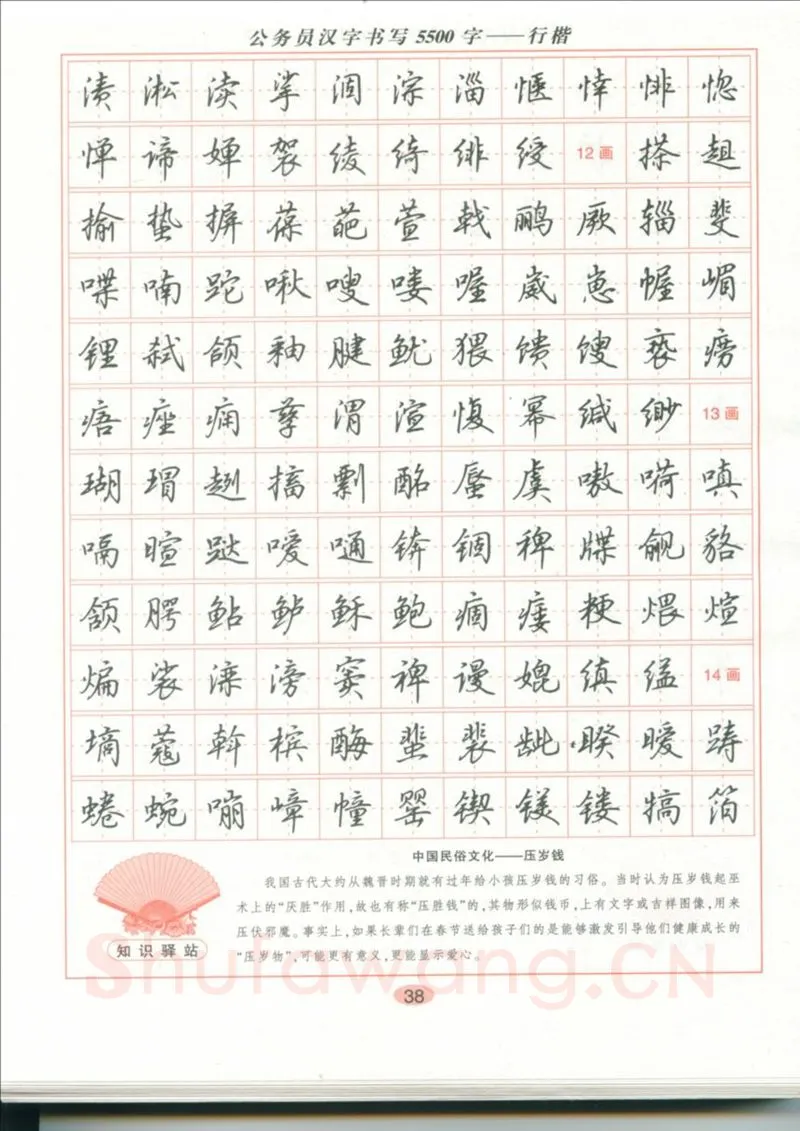 公务员汉字书写5500字——行楷
渍 淞 渎 挲 涸 淙 淄 惬 悻 悱 惚
惮 谛 婵 袈 绫 绮 绯 绶 12画 搽 趄
揄 蛰 摒 葆 葩 萱 戟 鹂 厥 辎 斐
喋 喃 跎 啾 嗖 喽 喔 崴 崽 幄 嵋
锂 弑 颌 釉 腱 鱿 猥 馈 馊 亵 痨
痦 痤 痫 孳 渭 渲 愎 幂 缄 缈 13画
瑚 瑁 趔 搞 剽 酩 蜃 虞 嗷 嗬 嗔
嗝 暄 跶 嗳 嗵 锛 锢 稗 牒 觎 貉
颔 腭 鲇 鲈 稣 鲍 痼 瘘 粳 煨 煊
煸 裟 滦 滂 窦 裨 谩 媲 缜 缢 14画
墒 蔻 斡 槟 酶 蜚 裴 龇 暌 暧 踌
蜷 蜿 嘣 嶂 幢 罂 锲 镁 镂 犒 箔
中国民俗文化——压岁钱
我国古代大约从魏晋时期就有过年给小孩压岁钱的习俗。当时认为压岁钱起巫
术上的“厌胜”作用,故也有称“压胜钱”的,其物形似钱币,上有文字或吉祥图像,用来
压伏邪魔。事实上,如果长辈们在春节送给孩子们的是能够激发引导他们健康成长的
“压岁物”,可能更有意义,更能显示爱心。
知识驿站
Shufawang.CN
38